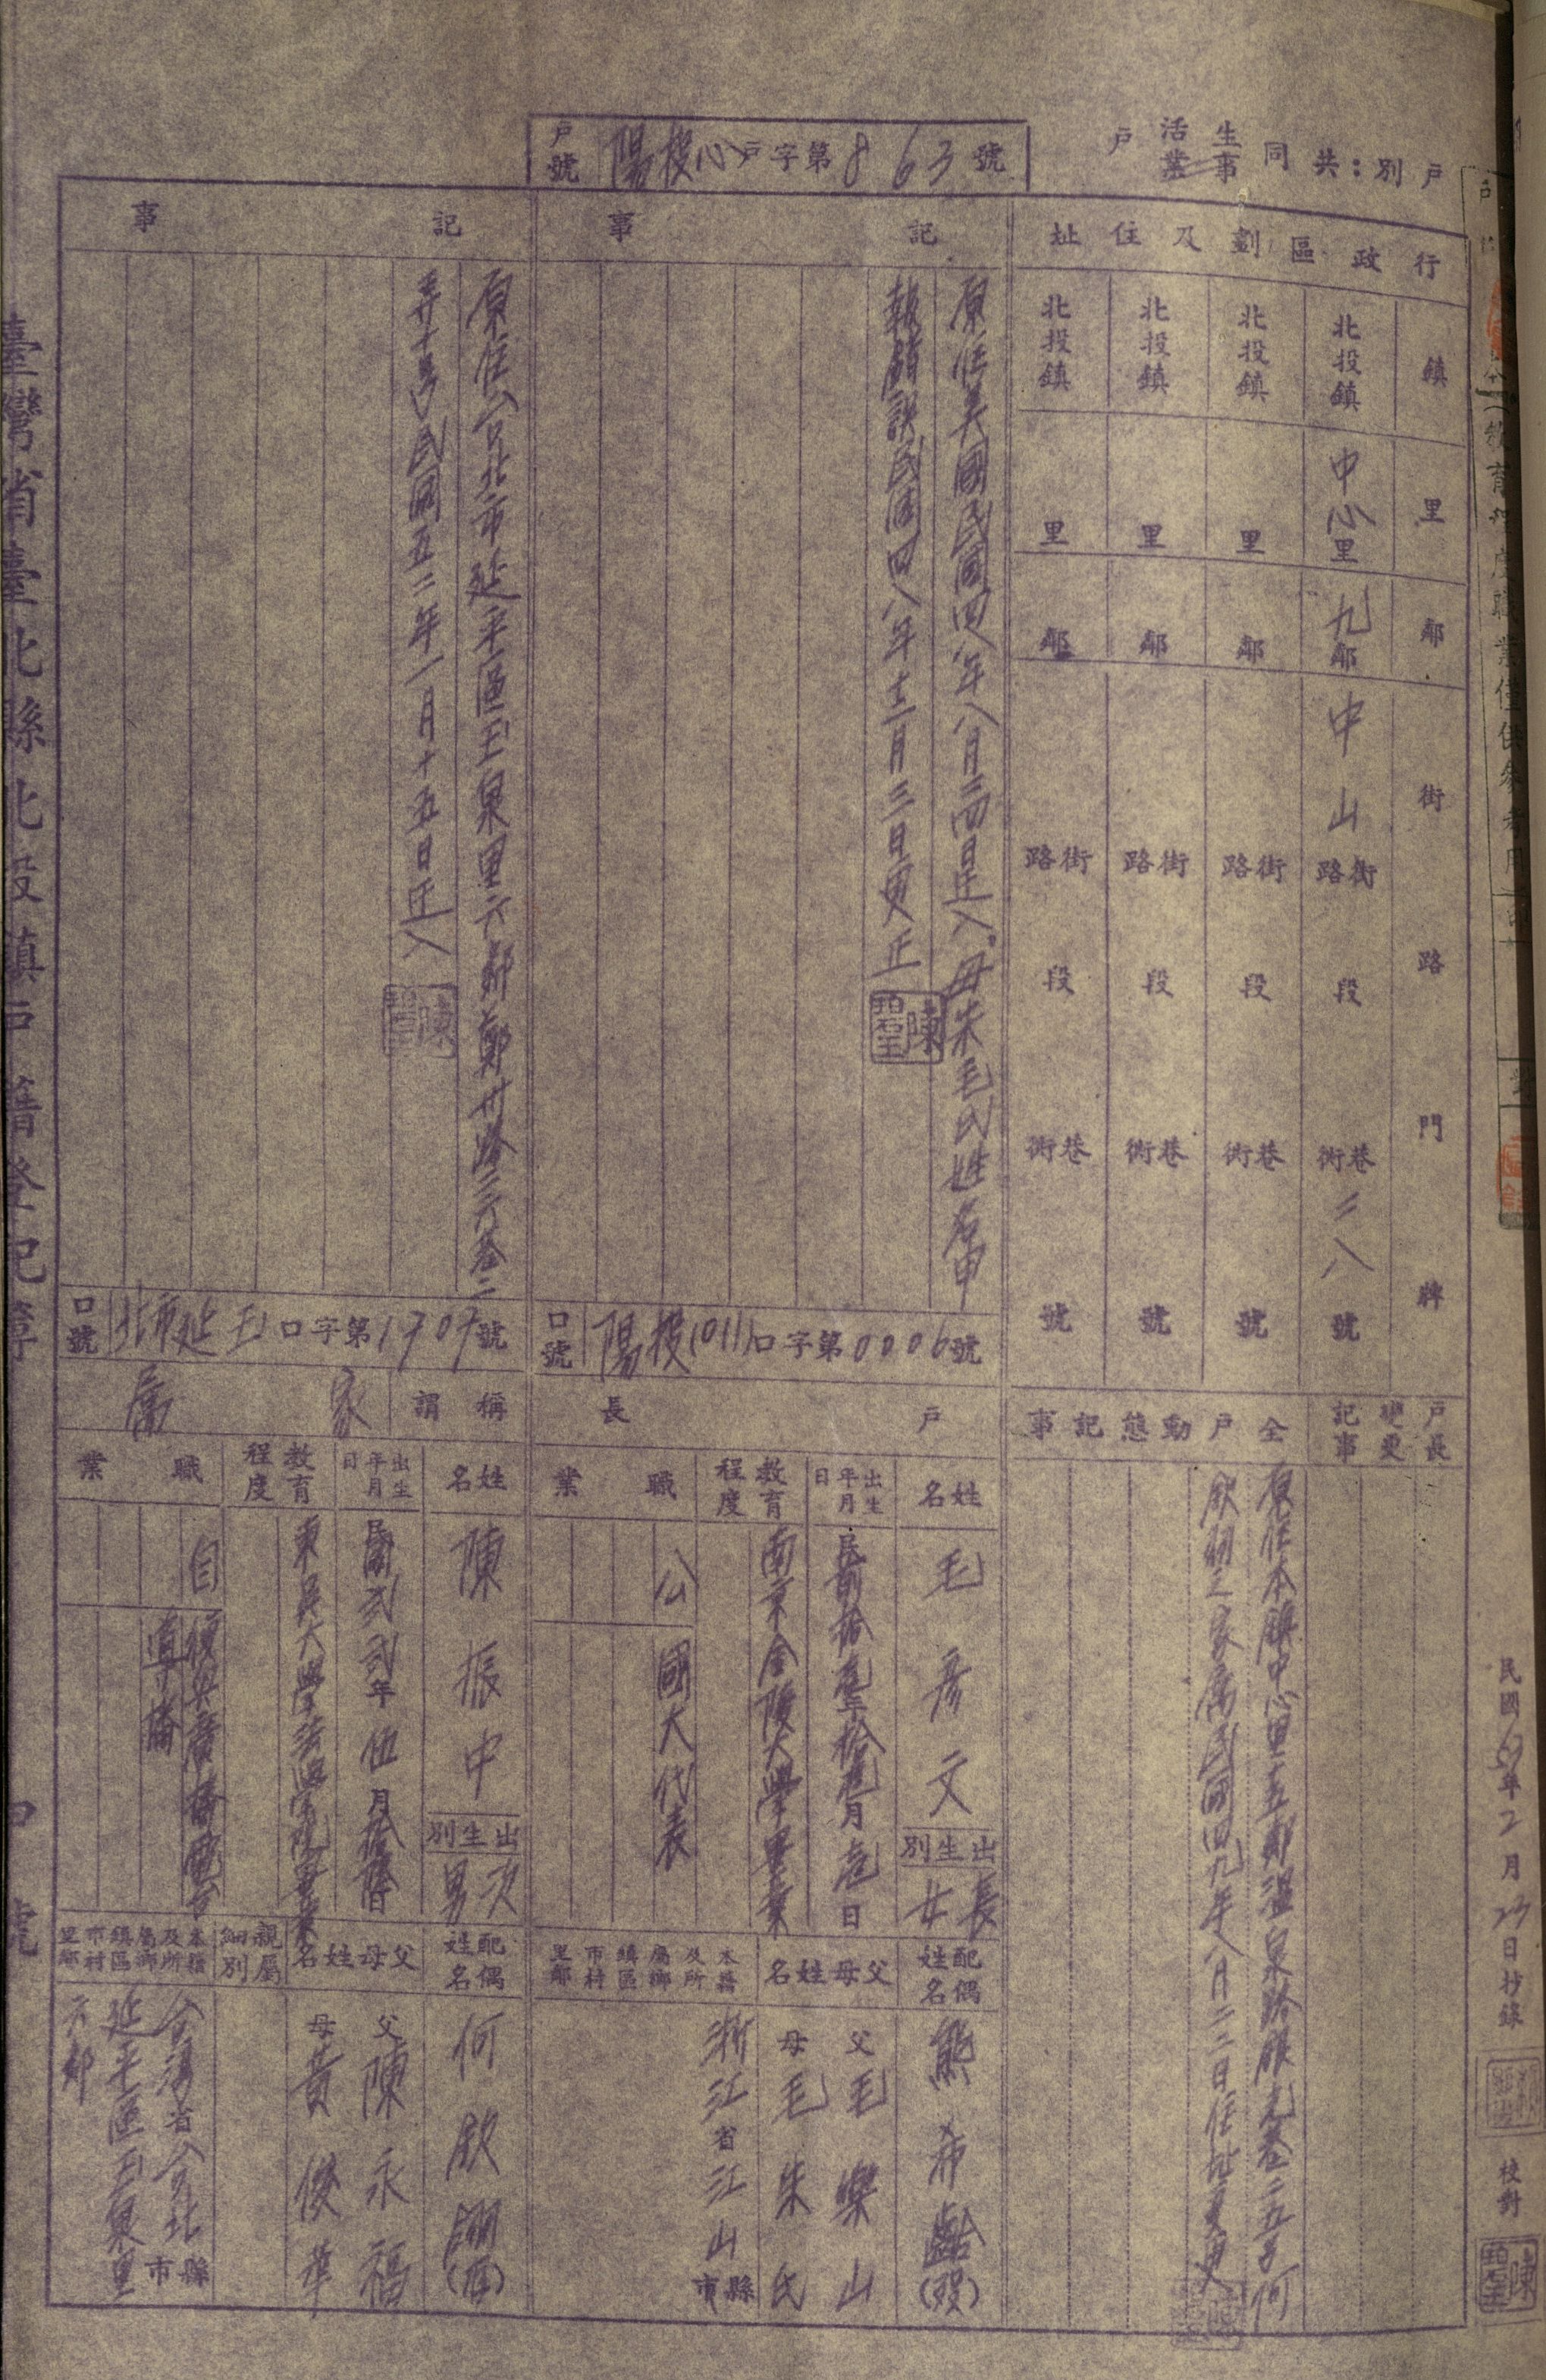 戶別：共同生活戶
事業
戶號 陽投心戶字第863號
行政區劃及住址
鎮 里 鄰 街路門牌
北投鎮 中心里 九鄰 中山路街 段 巷衖 二八號
北投鎮 里 鄰 路街 段 巷衖 號
北投鎮 里 鄰 路街 段 巷衖 號
北投鎮 里 鄰 路街 段 巷衖 號
戶長變更記事
全戶動態記事
原住本鎮中心里十五鄰溫泉路銀光巷二五号何
欽翎之家屬民國四九年八月二二日住址變更
記事
原住美國民國四八年八月二四日迁入。母朱毛氏姓名申
報錯誤民國四八年十二月三日更正
口號 陽投(011)口字第0006號
戶長
姓名 毛彥文
出生別 長女
出生年月日 民前拾壹年拾壹月壹日
教育程度 南京金陵大學畢業
職業 公 國大代表
配偶姓名 熊希齡(歿)
父母姓名 父 毛樂山
母 毛朱氏
本籍及所屬鄉鎮區市村里鄰 浙江省江山縣市
記事
原住台北市延平區玉泉里六鄰鄭州路三六巷二
弄十号民國五二年一月十五日迁入
口號 北市延玉口字第1707號
稱謂 家屬
姓名 陳振中
出生別 次男
出生年月日 民國貳貳年伍月拾陸日
教育程度 東吳大學法學院畢業
職業 自 復興廣播電台
導播
配偶姓名 何欽翎(酉)
父母姓名 父 陳永福
母 黃俊華
親屬細別
本籍及所屬鄉鎮區市村里鄰 台灣省台北縣市
延平區玉泉里
六鄰
臺灣省臺北縣北投鎮戶籍登記簿
民國 年2月23日抄錄
校對